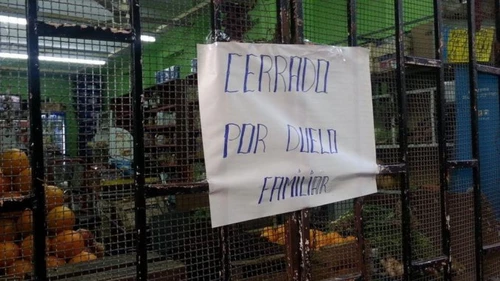 CERRADO
POR DUELO
FAMILIAR